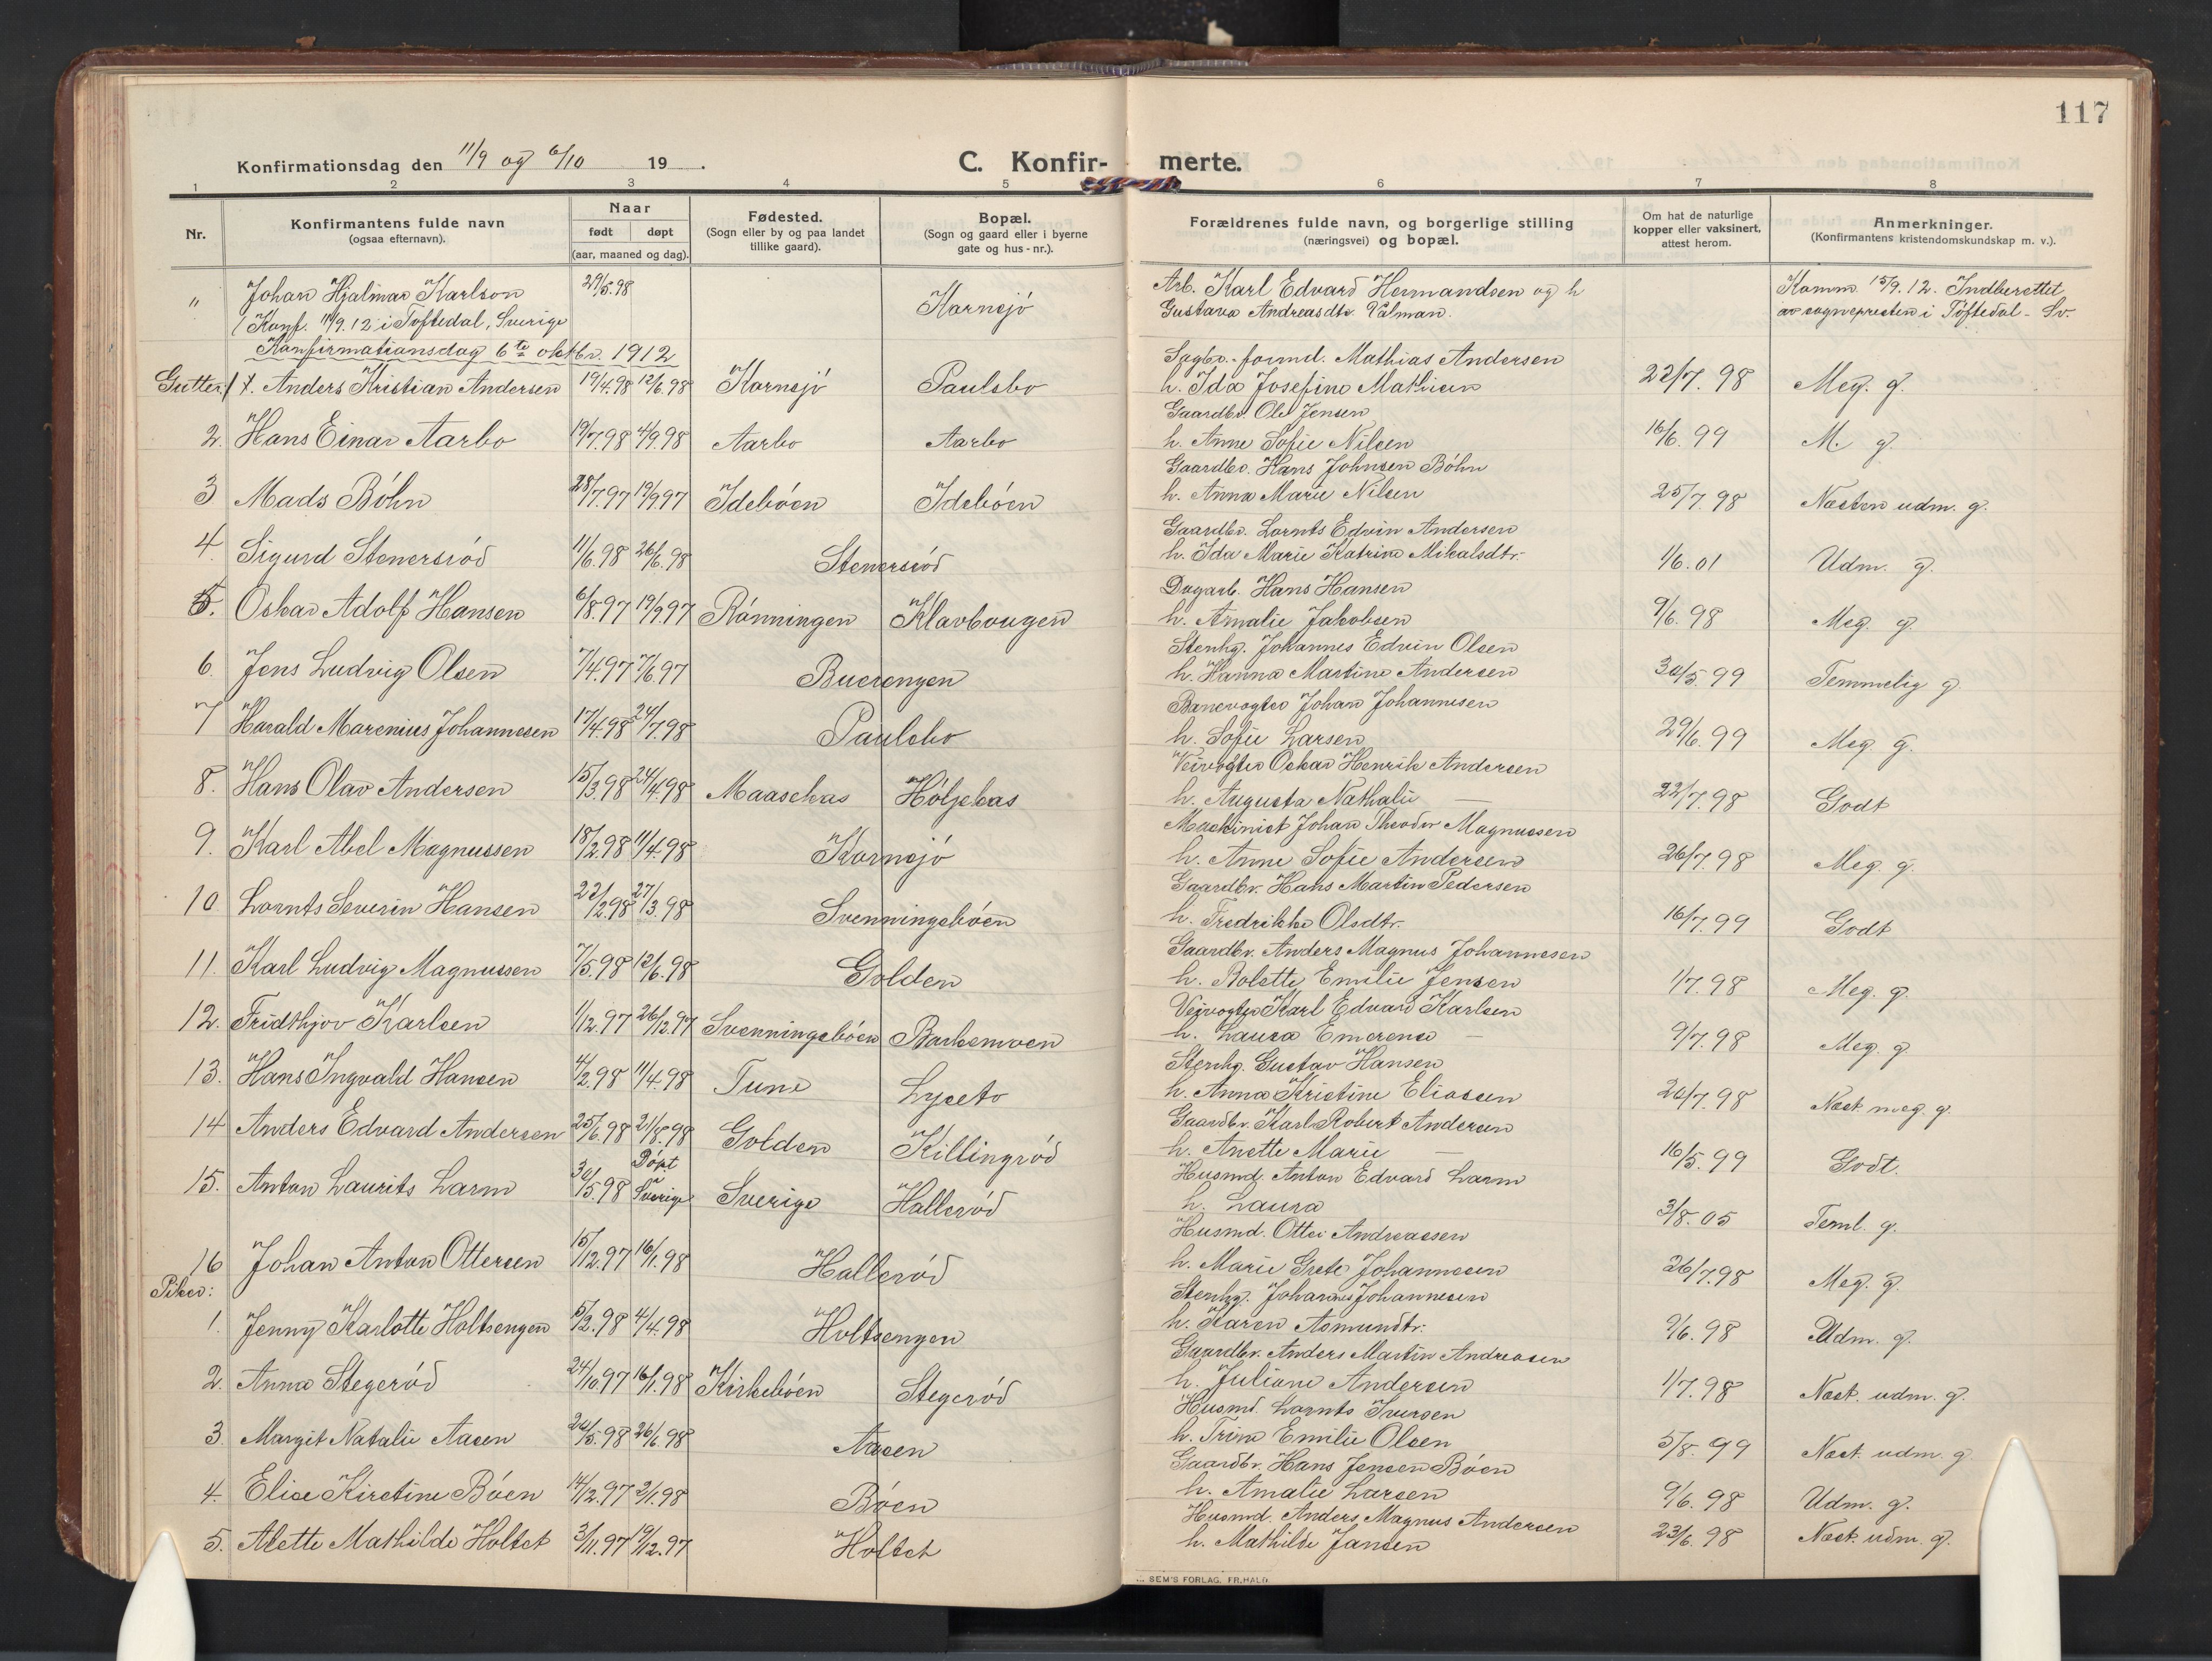 117
Konfirmationsdag den 11/9 og 6/10 19 .
C. Konfir- merte.
1 2 3 4 5 6 7 8
Nr.
Konfirmantens fulde navn
(ogsaa efternavn).
Naar
født døpt
(aar, maaned og dag).
Fødested.
(Sogn eller by og paa landet
tillike gaard).
Bopæl.
(Sogn og gaard eller i byerne
gate og hus-nr.).
Forældrenes fulde navn, og borgerlige stilling
(næringsvei) og bopæl.
Om hat de naturlige
kopper eller vaksinert,
attest herom.
Anmerkninger.
(Konfirmantens kristendomskundskap m. v.).
" Johan Hjalmar Karlson 29/5.98 Kornsjö Arb. Karl Edvard Hermandsen og h Komm. 15/9.12. Indberettet
(Konf. 11/9.12 i Töftedal, Sverige Gustava Andreasdtr Välman. av sognepresten i Töftedal - Sv.
Konfirmationsdag 6te oktbr. 1912
Sagbr. formd. Mathias Andersen
Gutter: 1. Anders Kristian Andersen 19/4.98 12/6.98 Kornsjö Paulsbo h. Ida Josefine Mathisen 22/7.98 Meg. g.
Gaardbr. Ole Jensen
2. Hans Einar Aarbo 19/7.98 4/9.98 Aarbo Aarbo h. Anne Sofie Nilsen 16/6.99 M. g.
Gaardbr. Hans Johnsen Böhn
3 Mads Böhn 28/7.97 19/9.97 Ideböen Ideböen h. Anna Marie Nilsen 25/7.98 Næsten udm. g.
Gaardbr. Lornts Edvin Andersen
4. Sigurd Stenersröd 11/6.98 26/6.98 Stenersröd h. Ida Marie Katrine Mikalsdtr. 1/6.01 Udm. g.
Dagarb. Hans Hansen
5. Oskar Adolf Hansen 6/8.97 19/9.97 Rönningen Klavhougen h. Amalie Jakobsen 9/6.98 Meg. g.
Stenhg. Johannes Edvin Olsen
6. Jens Ludvig Olsen 7/4.97 7/6.97 Buerengen h. Hanna Martine Andersen 30/5.99 Temmelig g.
Banevogter Johan Johannesen
7 Harald Marenius Johannesen 17/4.98 24/7.98 Paulsbo h. Sofie Larsen 29/6.99 Meg. g.
Veivogter Oskar Henrik Andersen
8. Hans Olav Andersen 15/3.98 24/4.98 Maaschas Höljekas h. Augusta Nathalie — 22/7.98 Godt
Maskinist Johan Theodor Magnussen
9. Karl Abel Magnussen 18/2.98 11/4.98 Kornsjö h. Anne Sofie Andersen 26/7.98 Meg. g.
Gaardbr. Hans Martin Pedersen
10 Lornts Severin Hansen 22/2.98 27/3.98 Svenningsböen h. Fredrikke Olsdtr. 16/7.99 Godt
Gaardbr. Anders Magnus Johannesen
11. Karl Ludvig Magnussen 7/5.98 12/6.98 Golden h. Bolette Emilie Jensen 1/7.98 Meg. g.
Veivogter Karl Edvard Karlsen
12. Fridthjov Karlsen 1/12.97 26/12.97 Svenningsböen Barkemoen h. Laura Emerense — 9/7.98 Meg. g.
Stenhg. Gustav Hansen
13. Hans Ingvald Hansen 4/2.98 11/4.98 Tune Lyseto h. Anna Kristine Eliassen 20/7.98 Næst. meg. g.
Gaardbr. Karl Robert Andersen
14 Anders Edvard Andersen 25/6.98 21/8.98 Golden Killingröd h. Anette Marie — 16/5.99 Godt.
Husmd. Anton Edvard Larm
15. Anton Laurits Larm 30/5.98 Döpt i Sverige Sverige Halleröd h. Laura 3/8.05 Teml. g.
Husmd. Otter Andreassen
16 Johan Anton Ottersen 15/12.97 16/1.98 Halleröd h. Marie Grete Johannesen 26/7.98 Meg. g.
Piker:
Stenhg. Johannes Johannesen
1. Jenny Karlotte Holtsengen 5/2.98 4/4.98 Holtsengen h. Karen Asmundtr. 9/6.98 Udm. g.
Gaardbr. Anders Martin Andreasen
2. Anna Stegeröd 24/10.97 16/1.98 Kirkeböen Stegeröd h. Juliane Andersen 1/7.98 Næst. udm. g.
Husmd. Lornts Iversen
3. Margit Natalie Aasen 20/5.98 26/6.98 Aasen h. Trine Emilie Olsen 5/8.99 Næst. udm. g
Gaardbr. Hans Jensen Böen
4. Elise Kirstine Böen 14/12.97 2/1.98 Böen h. Amalie Larsen 9/6.98 Udm. g.
Husmd. Anders Magnus Andersen
5. Alette Mathilde Holtet 3/11.97 19/12.97 Holtet h. Mathilde Jansen 23/6.98 Næst. udm. g.
SEM'S FORLAG, FR.HALD.